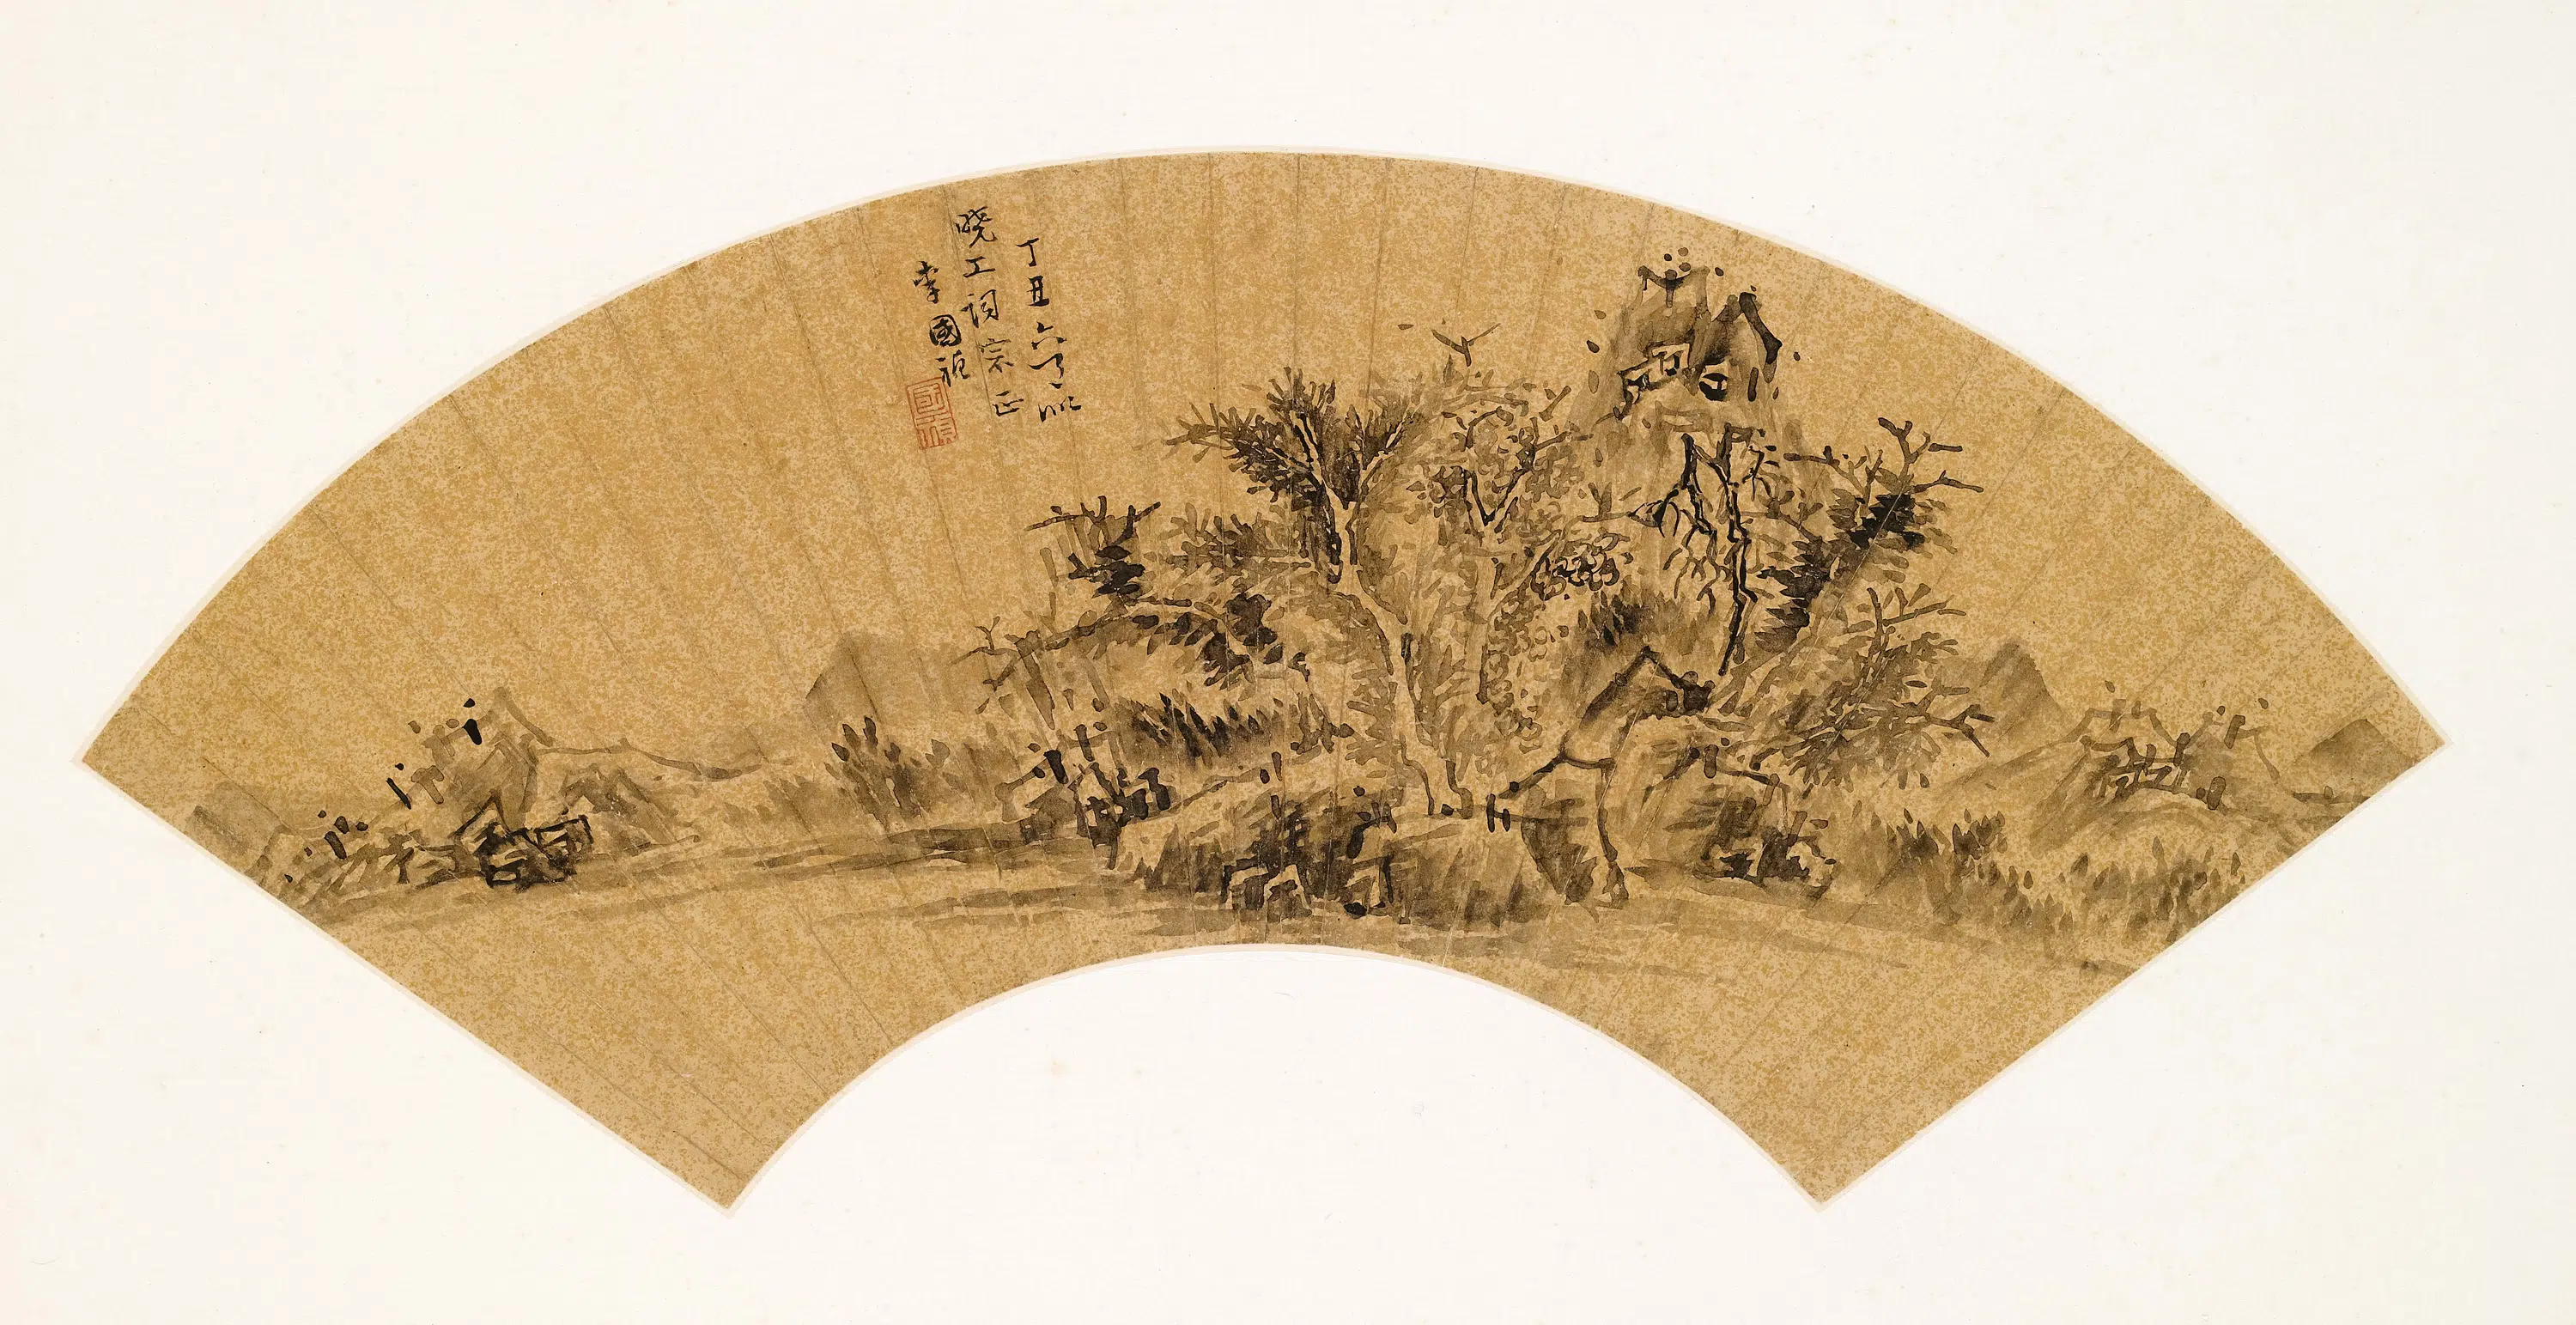 丁丑六月似
曉工詞宗正
李國禎
國禎